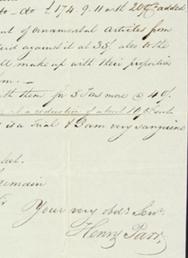 to - do £174.9.11 with 20th added
of ornamental articles from
against it at 33/. also to the
make up with their proportion
them for 3 Tons more @ 40/.
a reduction of about 10 p cent
is a Trial & I am very sanguine
remain
Your very obdt Servt
Henry Parr